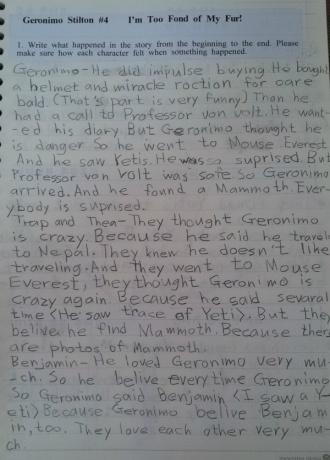 Geronimo Stilton #4 I'm Too Fond of My Fur!
1. Write what happened in the story from the beginning to the end. Please
make sure how each character felt when something happened.
Geronimo-He did impulse buying He bought
a helmet and miracle roction for care
bald. (That's part is very funny) Than he
had a call to Professor von volt. He want-
-ed his diary. But Geronimo thought he
is danger So he went to Mouse Everest
And he saw Yetis. He was so suprised. But
Professor von Volt was safe So Geronimo
arrived. And he found a Mammoth. Ever-
ybody is suprised.
Trap and Thea-They thought Geronimo
is crazy. Because he said he travel
to Nepal. They knew he doesn't like
traveling. And they went to Mouse
Everest, they thought Geronimo is
crazy again. Because he said sevaral
time <He saw trace of Yeti>. But they
belive he find Mammoth. Because ther
are photos of Mammoth.
Benjamin-He loved Geronimo very mu-
-ch. So he belive every time Geronimo
So Geronimo said Benjamin <I saw a Y-
eti> Because Geronimo belive Benjam
in, too. They love each other very mu-
ch.